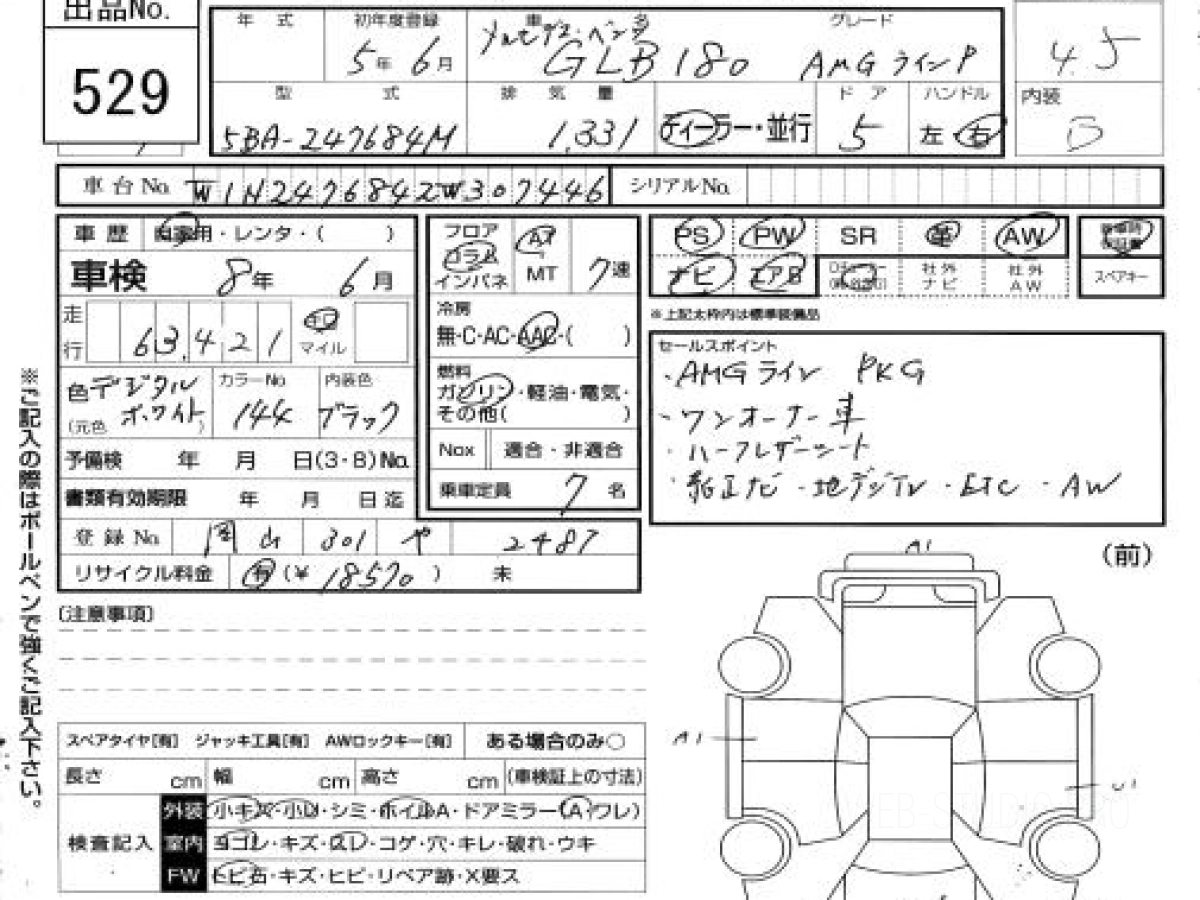 出品No.
529
年 式 初年度登録 車名 グレード
5年 6月 メルセデス・ベンツ GLB 180 AMG ラインP
4.5
型 式 排気量 ドア ハンドル 内装
5BA-247684M 1,331 ディーラー・並行 5 左・右 B
車台No. W1N2476842W307446 シリアルNo.
車歴 自家用・レンタ・( )
車検 8年 6月
走行 63,421 キロ マイル
色 デジタルホワイト カラーNo. 144 内装色 ブラック
(元色 )
予備検 年 月 日(3・8)No.
書類有効期限 年 月 日迄
登録No. 岡山 301 や 2487
リサイクル料金 有 (¥ 18570 ) 未
フロア コラム インパネ AT MT 7速
冷房
無・C・AC・AAC・( )
燃料
ガソリン・軽油・電気・
その他( )
Nox 適合・非適合
乗車定員 7 名
PS PW SR 革 AW 新車時保証書
ナビ エアB 社外ナビ 社外AW スペアキー
※上記太枠内は標準装備品
セールスポイント
・AMG ライン PKG
・ワンオーナー車
・ハーフレザーシート
・純正ナビ・地デジTV・ETC・AW
〔注意事項〕
※ご記入の際はボールペンで強くご記入下さい。
スペアタイヤ[有] ジャッキ工具[有] AWロックキー[有] ある場合のみ○
長さ cm 幅 cm 高さ cm (車検証上の寸法)
検査記入
外装 小キズ・小凹・シミ・ホイルA・ドアミラー(A・ワレ)
室内 ヨゴレ・キズ・スレ・コゲ・穴・キレ・破れ・ウキ
FW トビ石・キズ・ヒビ・リペア跡・X要ス
(前)
A1
A1
U1